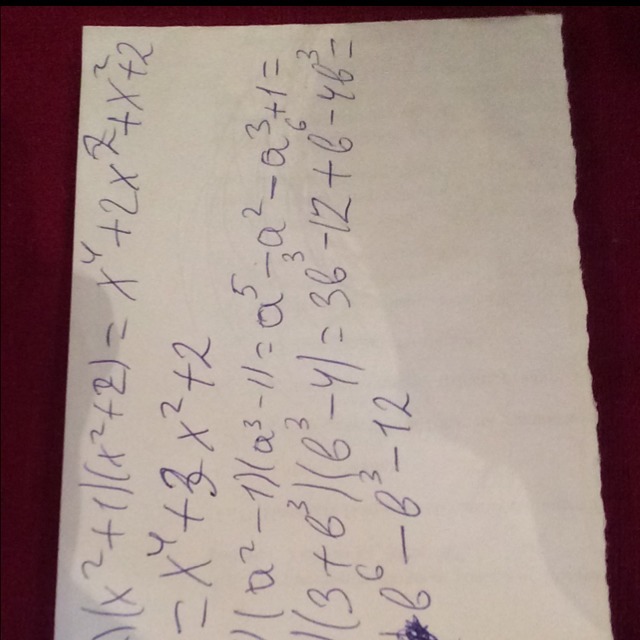 )(x²+1)(x²+2)=x⁴+2x²+x²+2
=x⁴+3x²+2
)(a²-1)(a³-1)=a⁵-a²-a³+1=
)(3+b³)(b³-4)=3b³-12+b⁶-4b³=
b⁶-b³-12